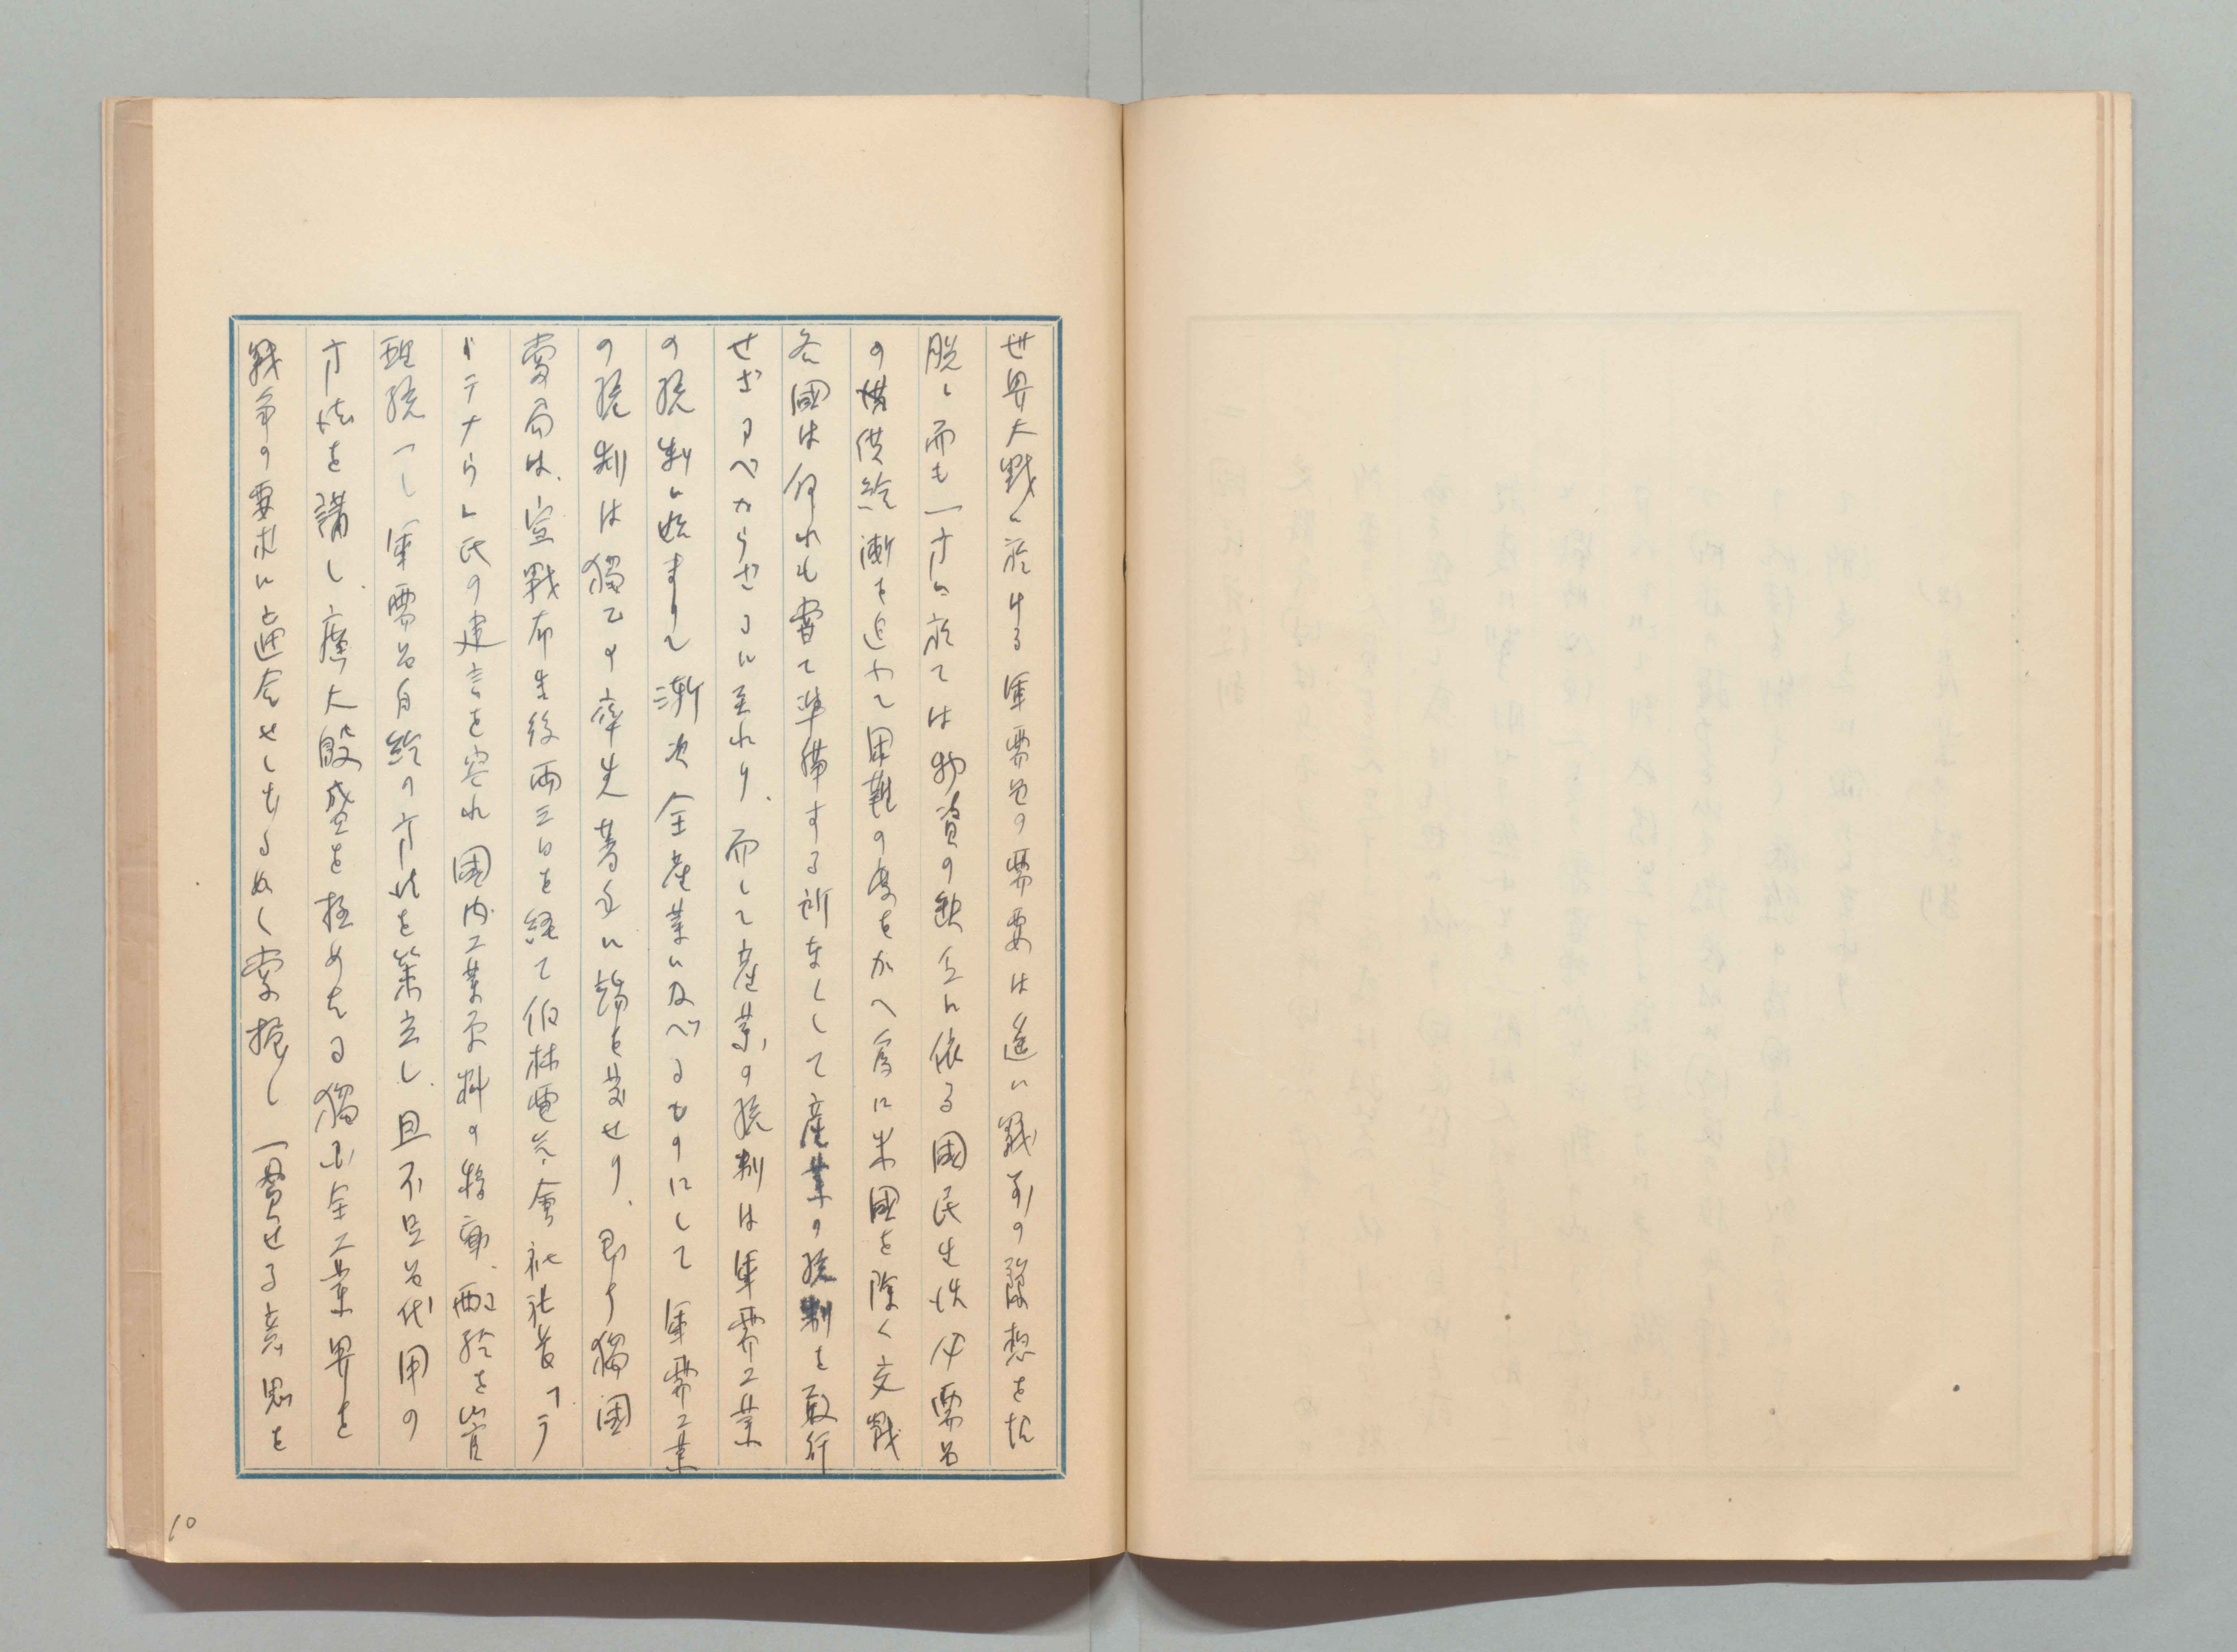 世界大戦に於ける軍需品の需要は遙に戦前の予想を超
脱し而も一方に於ては物資の欠乏に依る國民生活必需品
の供給漸を追ひて困難の度をかへ為に米國を除く交戦
各國は何れも嘗て準備する所なくして産業の統制を敢行
せざるべからざるに至れり、而して産業の統制は軍需工業
の統制に始まりて漸次全産業に及べるものにして軍需工業
の統制は獨乙の率先著手に端を発せり、即ち獨國
當局は、宣戦布告後両三日を経て伯林電気會社社長「ラ
ーテナウ」氏の建言を容れ國内工業原料の移動、配給を管
理統一し軍需品自給の方法を策立し、且不足品代用の
方法を講し、尨大殷盛を極めたる獨國全工業界を
戦争の要求に適合せしむる如く掌握し一貫せる意思を
10